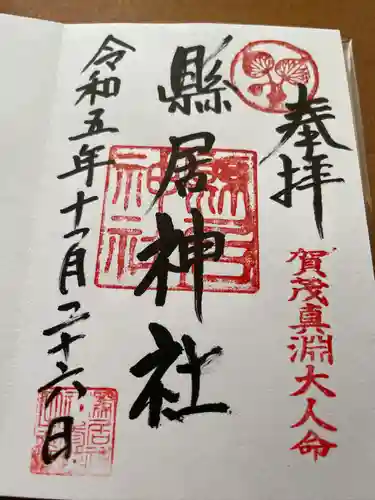 奉拝
賀茂真淵大人命
縣居神社
令和五年十一月二十六日
縣居神社